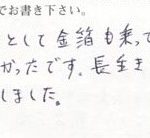 でお書き下さい。
として金箔も乗って
かったです。長生き
しました。